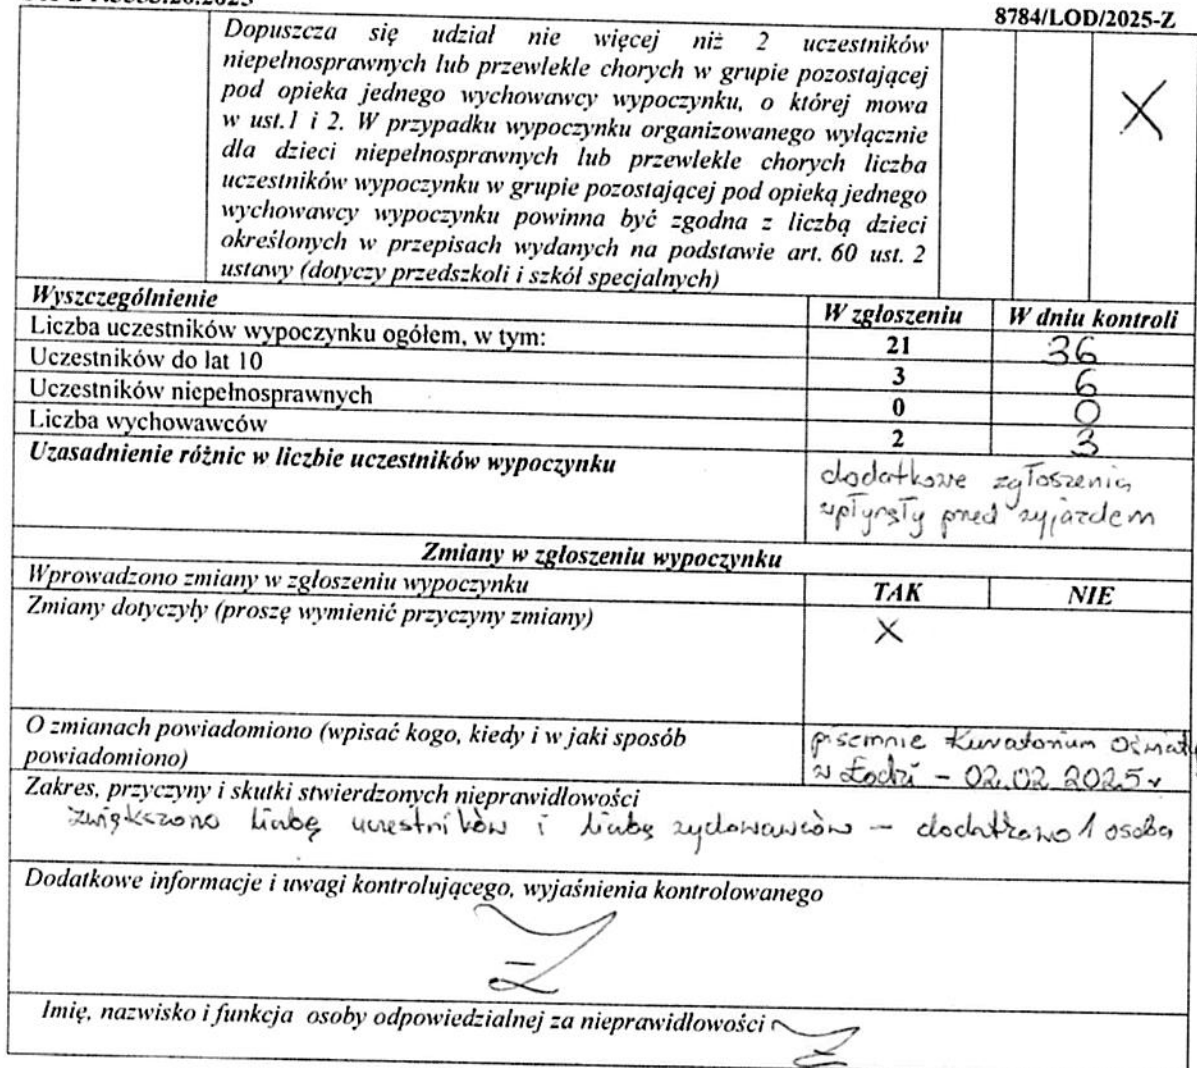 8784/LOD/2025-Z
Dopuszcza się udział nie więcej niż 2 uczestników
niepełnosprawnych lub przewlekle chorych w grupie pozostającej
pod opieka jednego wychowawcy wypoczynku, o której mowa
w ust.1 i 2. W przypadku wypoczynku organizowanego wyłącznie
dla dzieci niepełnosprawnych lub przewlekle chorych liczba
uczestników wypoczynku w grupie pozostającej pod opieką jednego
wychowawcy wypoczynku powinna być zgodna z liczbą dzieci
określonych w przepisach wydanych na podstawie art. 60 ust. 2
ustawy (dotyczy przedszkoli i szkół specjalnych)
X
Wyszczególnienie W zgłoszeniu W dniu kontroli
Liczba uczestników wypoczynku ogółem, w tym: 21 36
Uczestników do lat 10 3 6
Uczestników niepełnosprawnych 0 0
Liczba wychowawców 2 3
Uzasadnienie różnic w liczbie uczestników wypoczynku
dodatkowe zgłoszenia
wpłynęły przed wyjazdem
Zmiany w zgłoszeniu wypoczynku
Wprowadzono zmiany w zgłoszeniu wypoczynku TAK NIE
Zmiany dotyczyły (proszę wymienić przyczyny zmiany)
X
O zmianach powiadomiono (wpisać kogo, kiedy i w jaki sposób
powiadomiono)
pisemnie Kuratorium Oświaty
w Łodzi - 02.02.2025r
Zakres, przyczyny i skutki stwierdzonych nieprawidłowości
zwiększono liczbę uczestników i liczbę wychowawców - dodatkowo 1 osoba
Dodatkowe informacje i uwagi kontrolującego, wyjaśnienia kontrolowanego
Imię, nazwisko i funkcja osoby odpowiedzialnej za nieprawidłowości